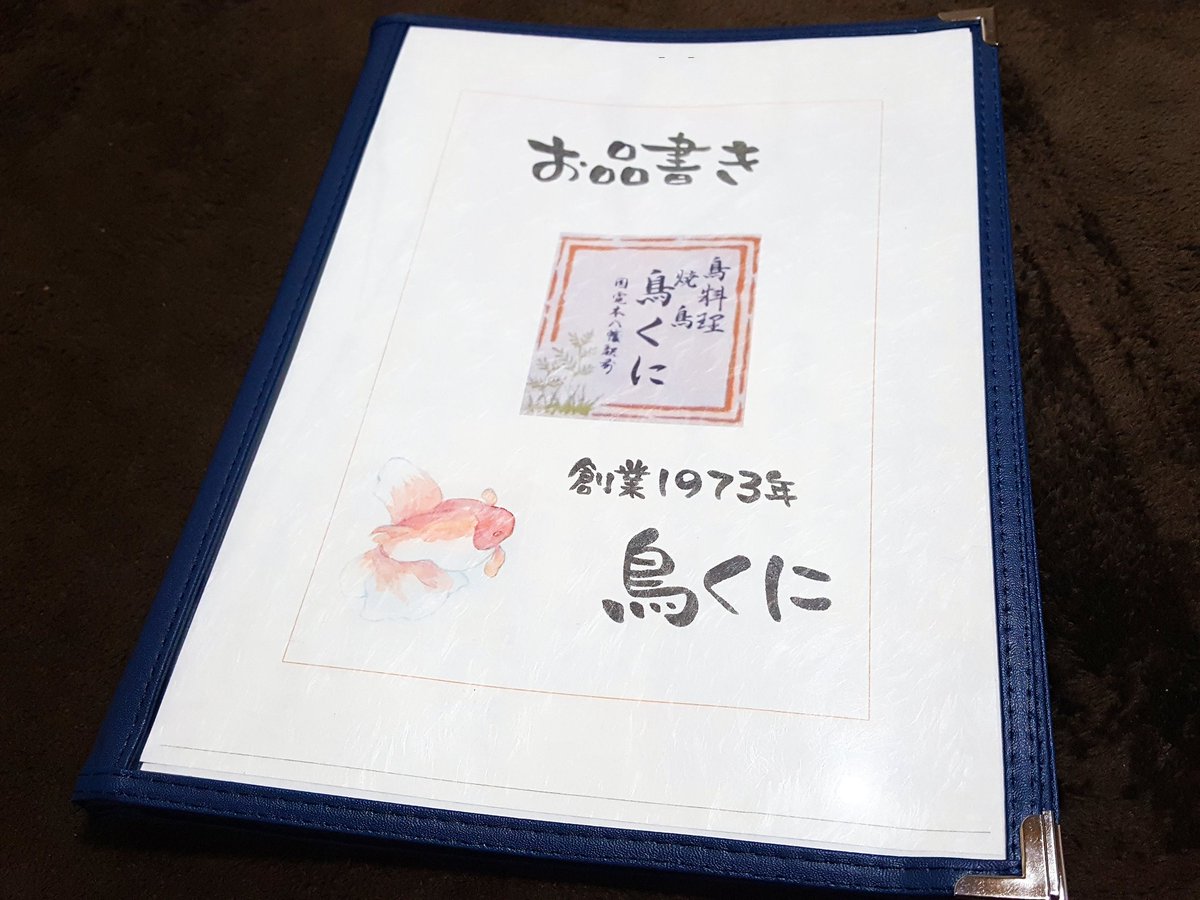 お品書き
鳥料理
焼鳥
鳥くに
国電本八幡駅前
創業1973年
鳥くに